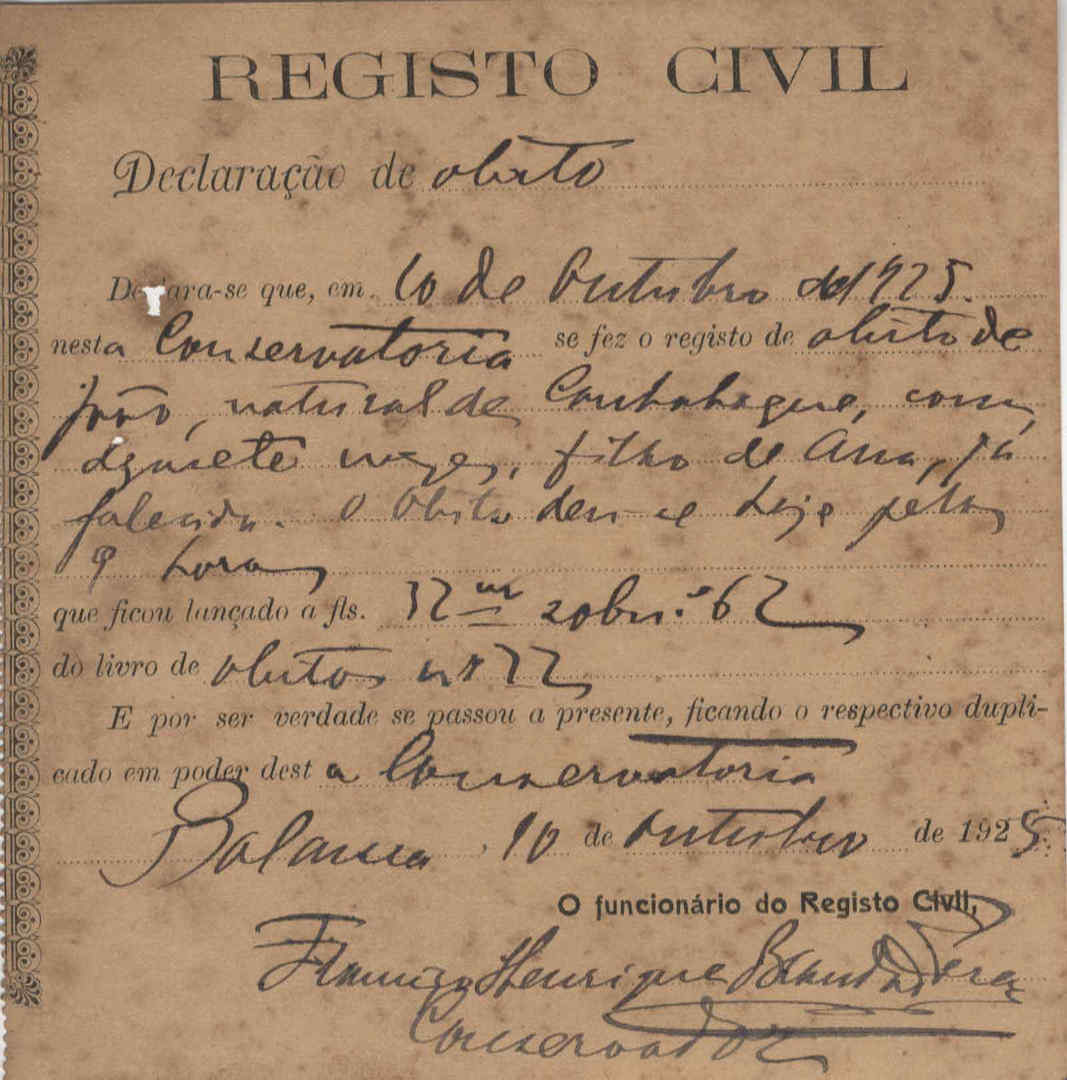 REGISTO CIVIL
Declaração de obito
Declara-se que, em 10 de Outubro de 1925.
nesta Conservatoria se fez o registo de obito de
João, natural de com
dezasete mezes, filho de Ana, já
falecida. O obito deu-se hoje pelas
9 horas
que ficou lançado a fls. 32 sob n.º 62
do livro de obitos nº 22
E por ser verdade se passou a presente, ficando o respectivo dupli-
cado em poder desta Conservatoria
Bolama 10 de Outubro de 1925.
O funcionário do Registo Civil,
Henrique
Conservador